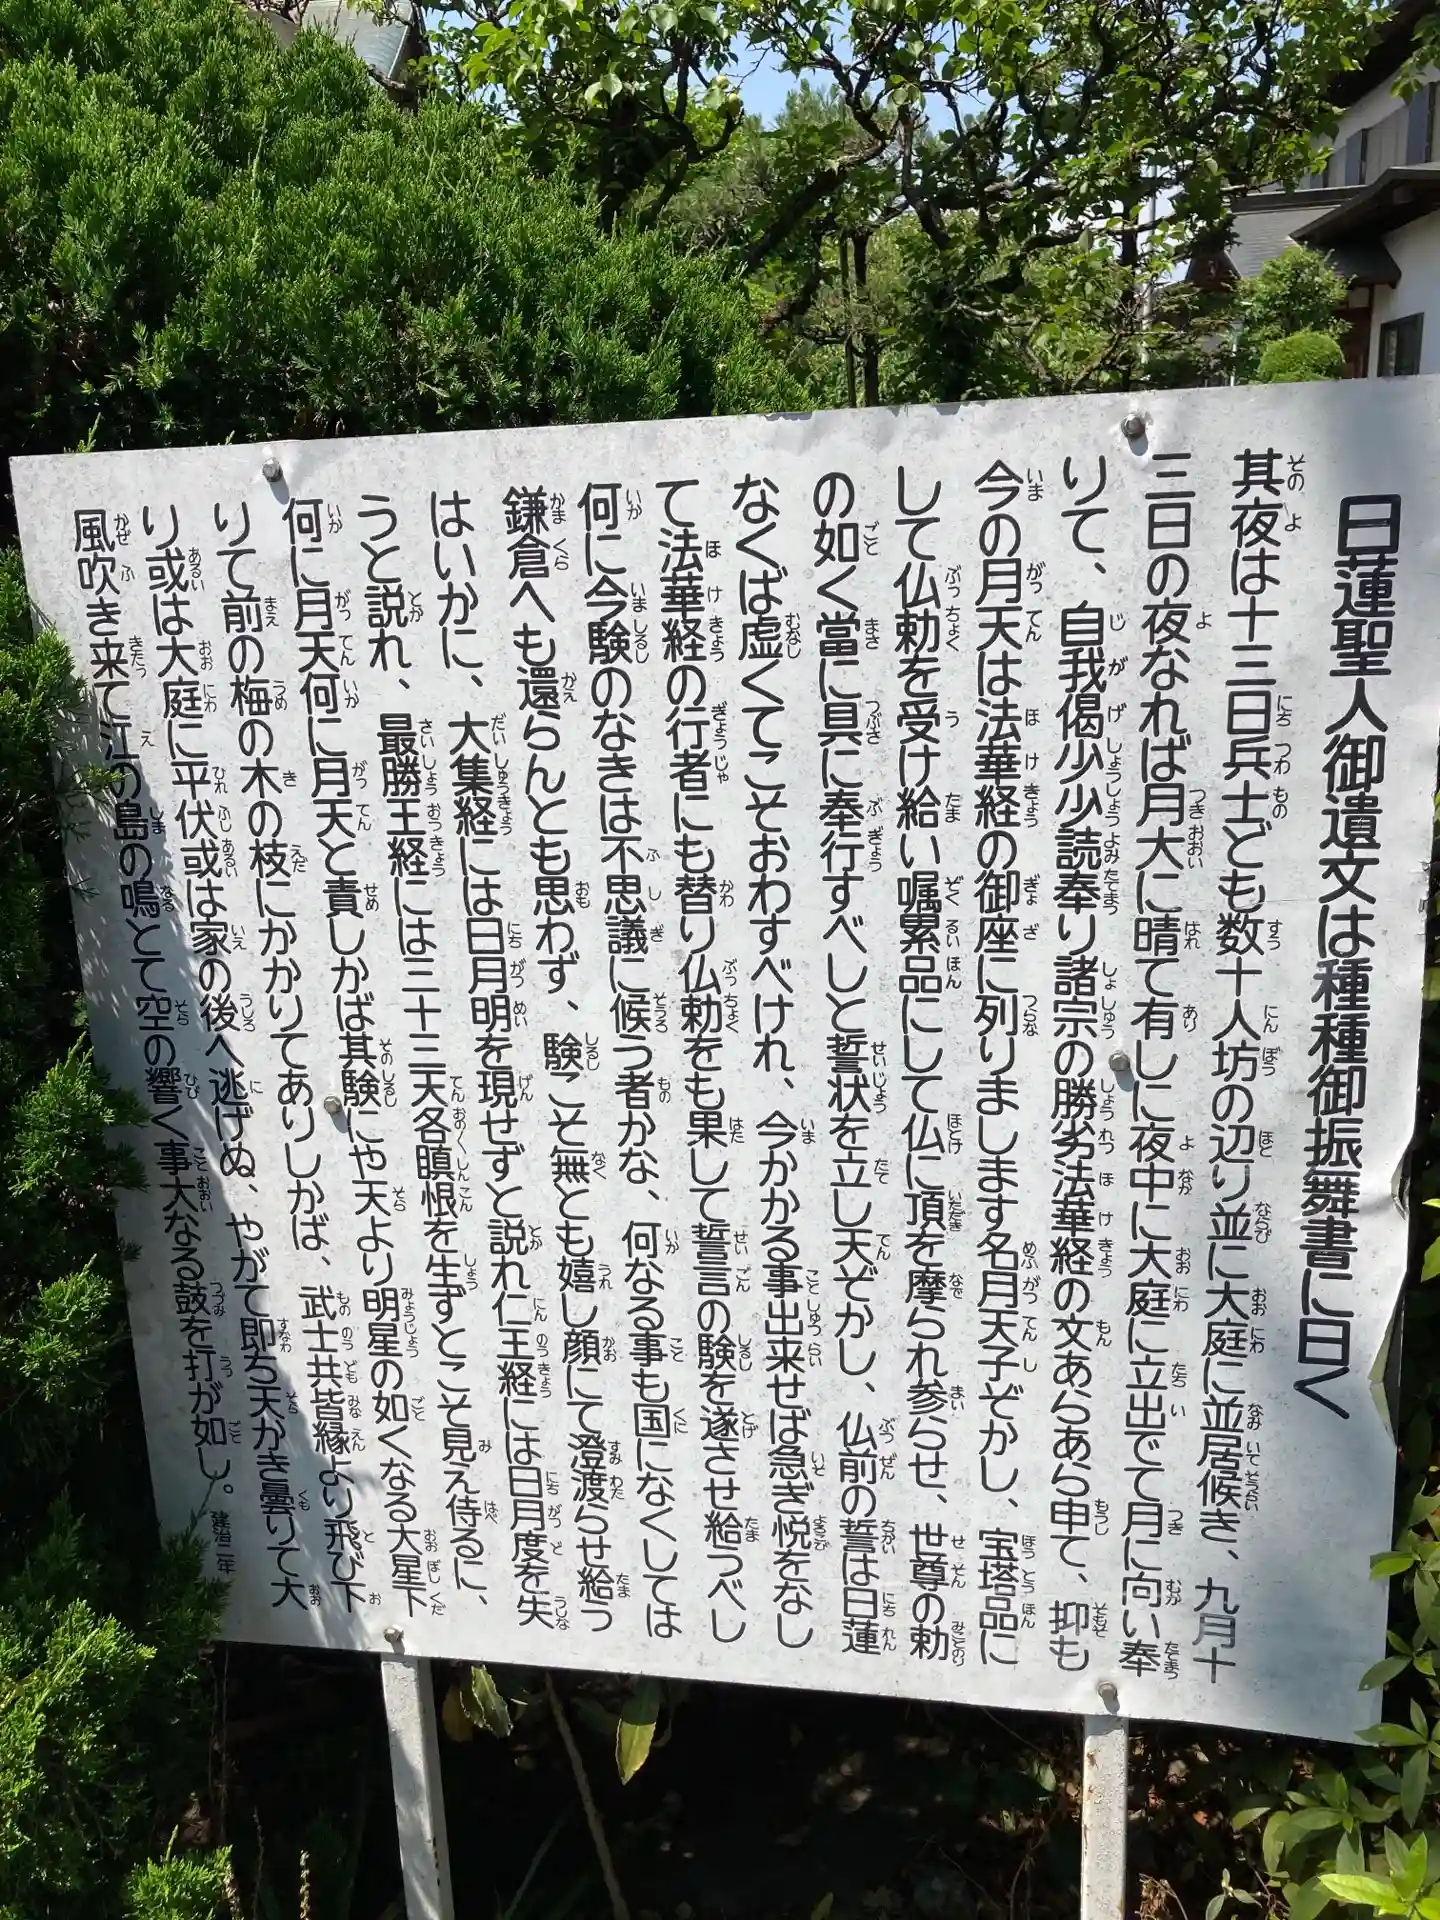 日蓮聖人御遺文は種種御振舞書に曰く
其夜は十三日兵士ども数十人坊の辺り並に大庭に並居候き、九月十
三日の夜なれば月大に晴て有しに夜中に大庭に立出でて月に向い奉
りて、自我偈少少読奉り諸宗の勝劣法華経の文あらあら申て、抑も
今の月天は法華経の御座に列りまします名月天子ぞかし、宝塔品に
して仏勅を受け給い嘱累品にして仏に頂を摩られ参らせ、世尊の勅
の如く當に具に奉行すべしと誓状を立し天ぞかし、仏前の誓は日蓮
なくば虚くてこそおわすべけれ、今かかる事出来せば急ぎ悦をなし
て法華経の行者にも替り仏勅をも果して誓言の験を遂させ給つべし
何に今験のなきは不思議に候う者かな、何なる事も国になくしては
鎌倉へも還らんとも思わず、験こそ無とも嬉し顔にて澄渡らせ給う
はいかに、大集経には日月明を現せずと説れ仁王経には日月度を失
うと説れ、最勝王経には三十三天各瞋恨を生ずとこそ見え侍るに、
何に月天何に月天と責しかば其験にや天より明星の如くなる大星下
りて前の梅の木の枝にかかりてありしかば、武士共皆縁より飛び下
り或は大庭に平伏或は家の後へ逃げぬ、やがて即ち天かき曇りて大
風吹き来て江の島の鳴とて空の響く事大なる鼓を打が如し。 建治二年